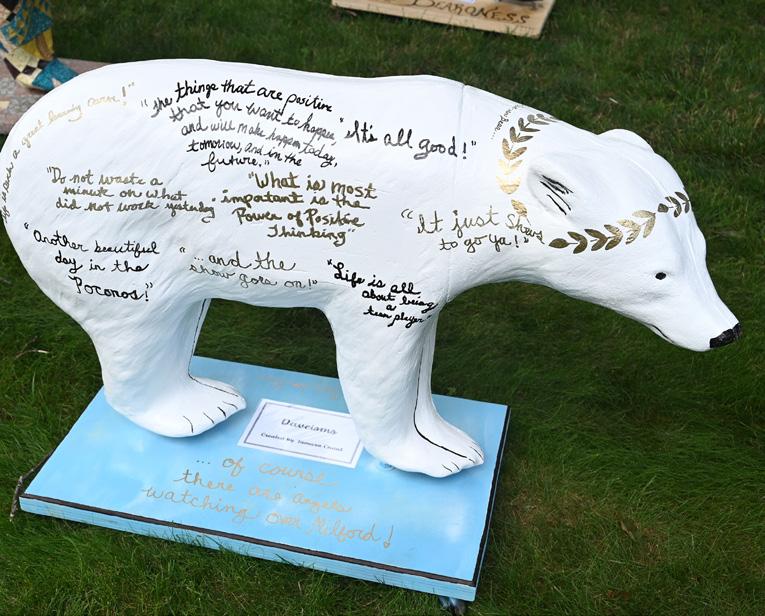 BEARONESS
is such a great beauty
"the things that are positive
that you want to happen,
and will make happen today,
tomorrow, and in the
future."
"It's all good!"
"Do not waste a
minute on what
did not work yesterday"
"What is most
important is the
Power of Positive
Thinking"
"It just shows
to go ya!"
"Another beautiful
day in the
Poconos!"
"...and the
show goes on!"
"Life is all
about being
a
team player"
Daveisms
Created by Tamara
... of course
there are angels
watching over Milford!